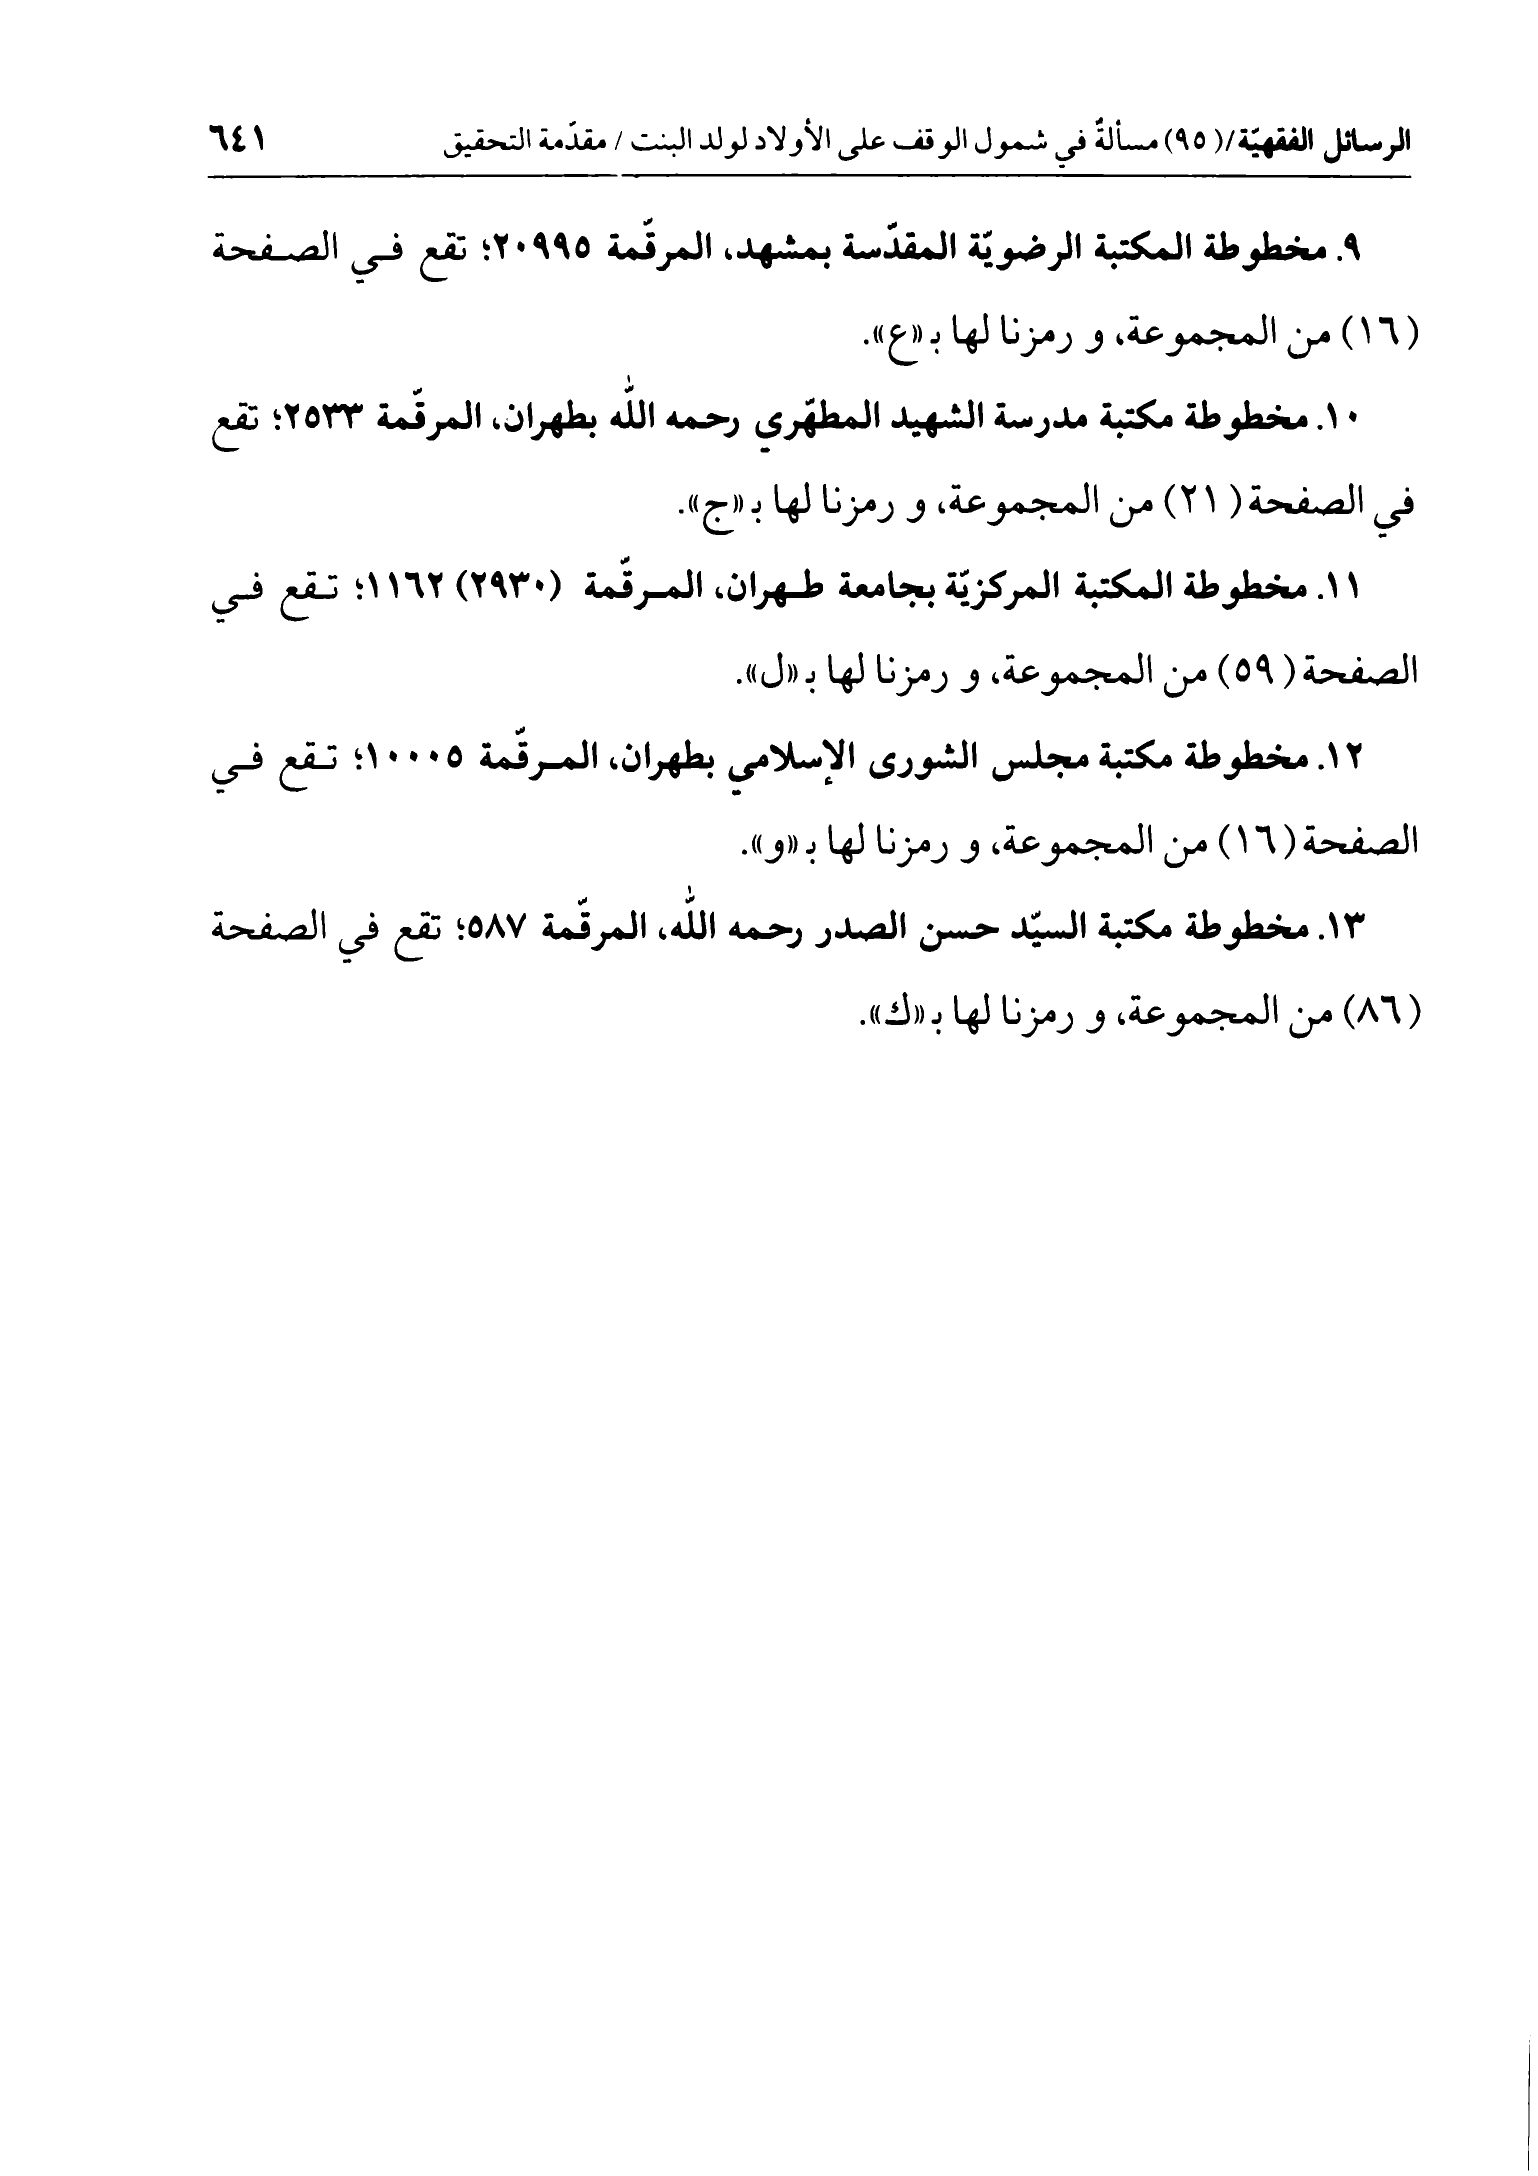 الرسائل الفقهيّة/(٩٥) مسألةٌ في شمول الوقف على الأولاد لولد البنت / مقدّمة التحقيق ٦٤١
٩. مخطوطة المكتبة الرضويّة المقدّسة بمشهد، المرقّمة ٢٠٩٩٥؛ تقع فـي الصـفحة
(١٦) من المجموعة، و رمزنا لها بـ «ع».
١٠. مخطوطة مكتبة مدرسة الشهيد المطهّري رحمه اللّٰه بطهران، المرقّمة ٢٥٣٣؛ تقع
في الصفحة (٢١) من المجموعة، و رمزنا لها بـ «ج».
١١. مخطوطة المكتبة المركزيّة بجامعة طـهران، المـرقّمة (٢٩٣٠) ١١٦٢؛ تـقع فـي
الصفحة (٥٩) من المجموعة، و رمزنا لها بـ «ل».
١٢. مخطوطة مكتبة مجلس الشورى الإسلامي بطهران، المـرقّمة ١٠٠٠٥؛ تـقع فـي
الصفحة (١٦) من المجموعة، و رمزنا لها بـ «و».
١٣. مخطوطة مكتبة السيّد حسن الصدر رحمه اللّٰه، المرقّمة ٥٨٧؛ تقع في الصفحة
(٨٦) من المجموعة، و رمزنا لها بـ «ك».